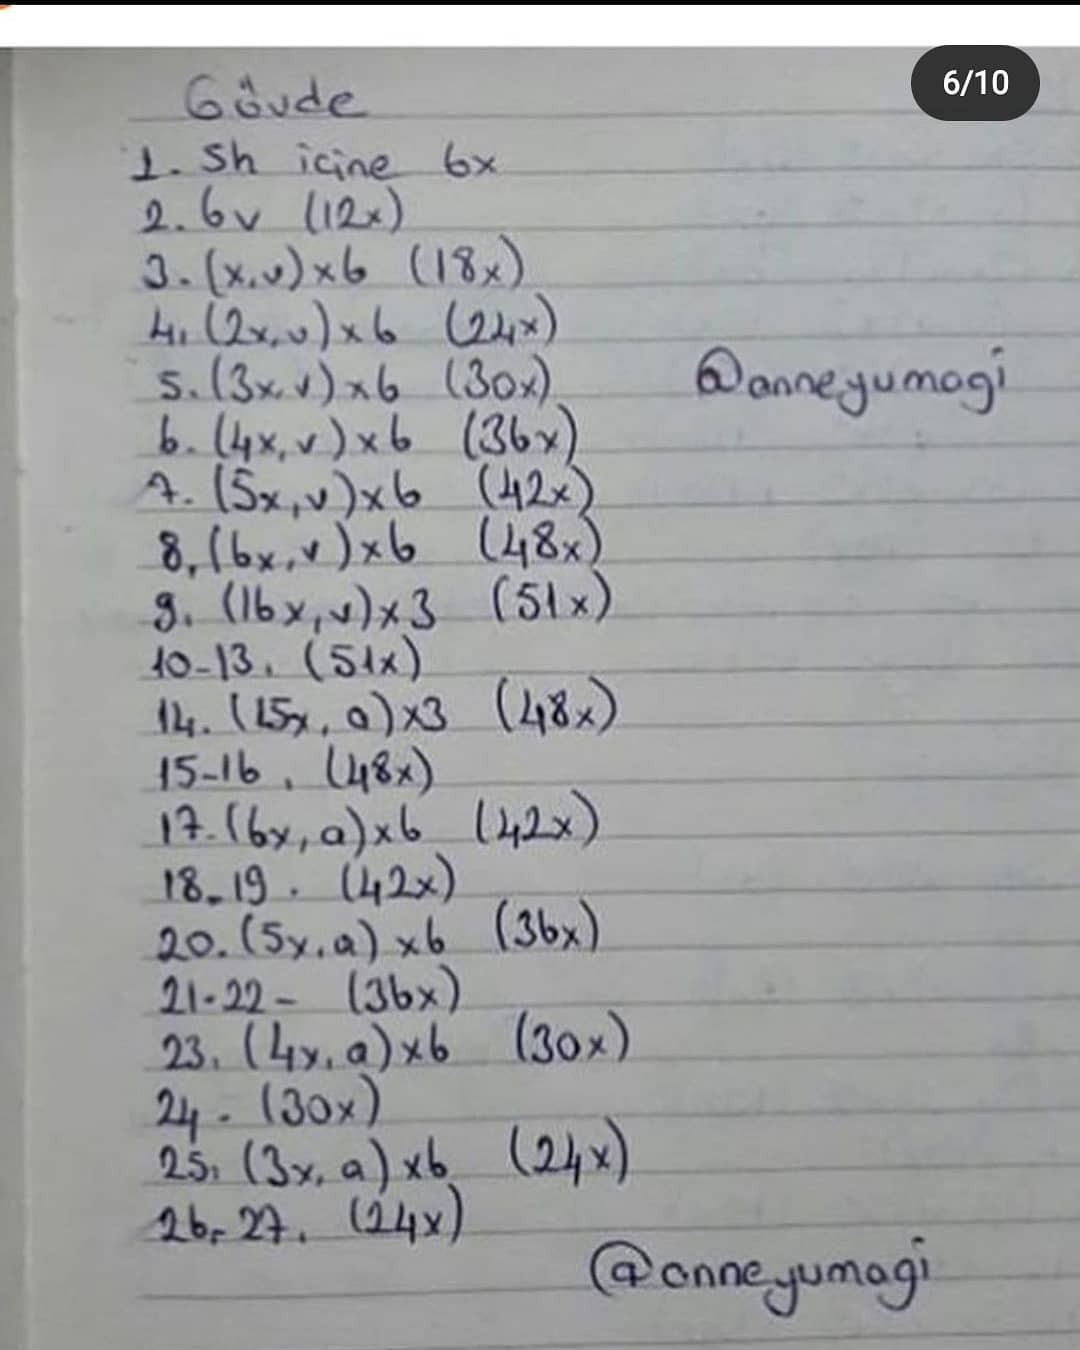 6/10
Gövde
1. Sh içine 6x
2. 6v (12x)
3. (x,v)x6 (18x)
4. (2x,v)x6 (24x)
@anneyumagi
5. (3x,v)x6 (30x)
6. (4x,v)x6 (36x)
7. (5x,v)x6 (42x)
8. (6x,v)x6 (48x)
9. (16x,v)x3 (51x)
10-13. (51x)
14. (15x,a)x3 (48x)
15-16. (48x)
17. (6x,a)x6 (42x)
18-19. (42x)
20. (5x,a)x6 (36x)
21-22- (36x)
23. (4x,a)x6 (30x)
24. (30x)
25. (3x,a)x6 (24x)
26-27. (24x)
@anneyumagi